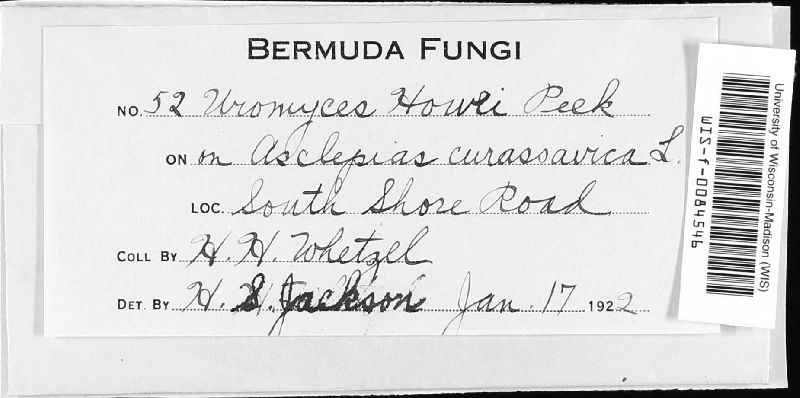 BERMUDA FUNGI
NO. 52 Uromyces Howei Peck
ON on Asclepias curassavica L.
LOC. South Shore Road
COLL BY H. H. Whetzel
DET. BY H. S. Jackson Jan. 17 1922
University of Wisconsin-Madison (WIS)
WIS-f-0084546